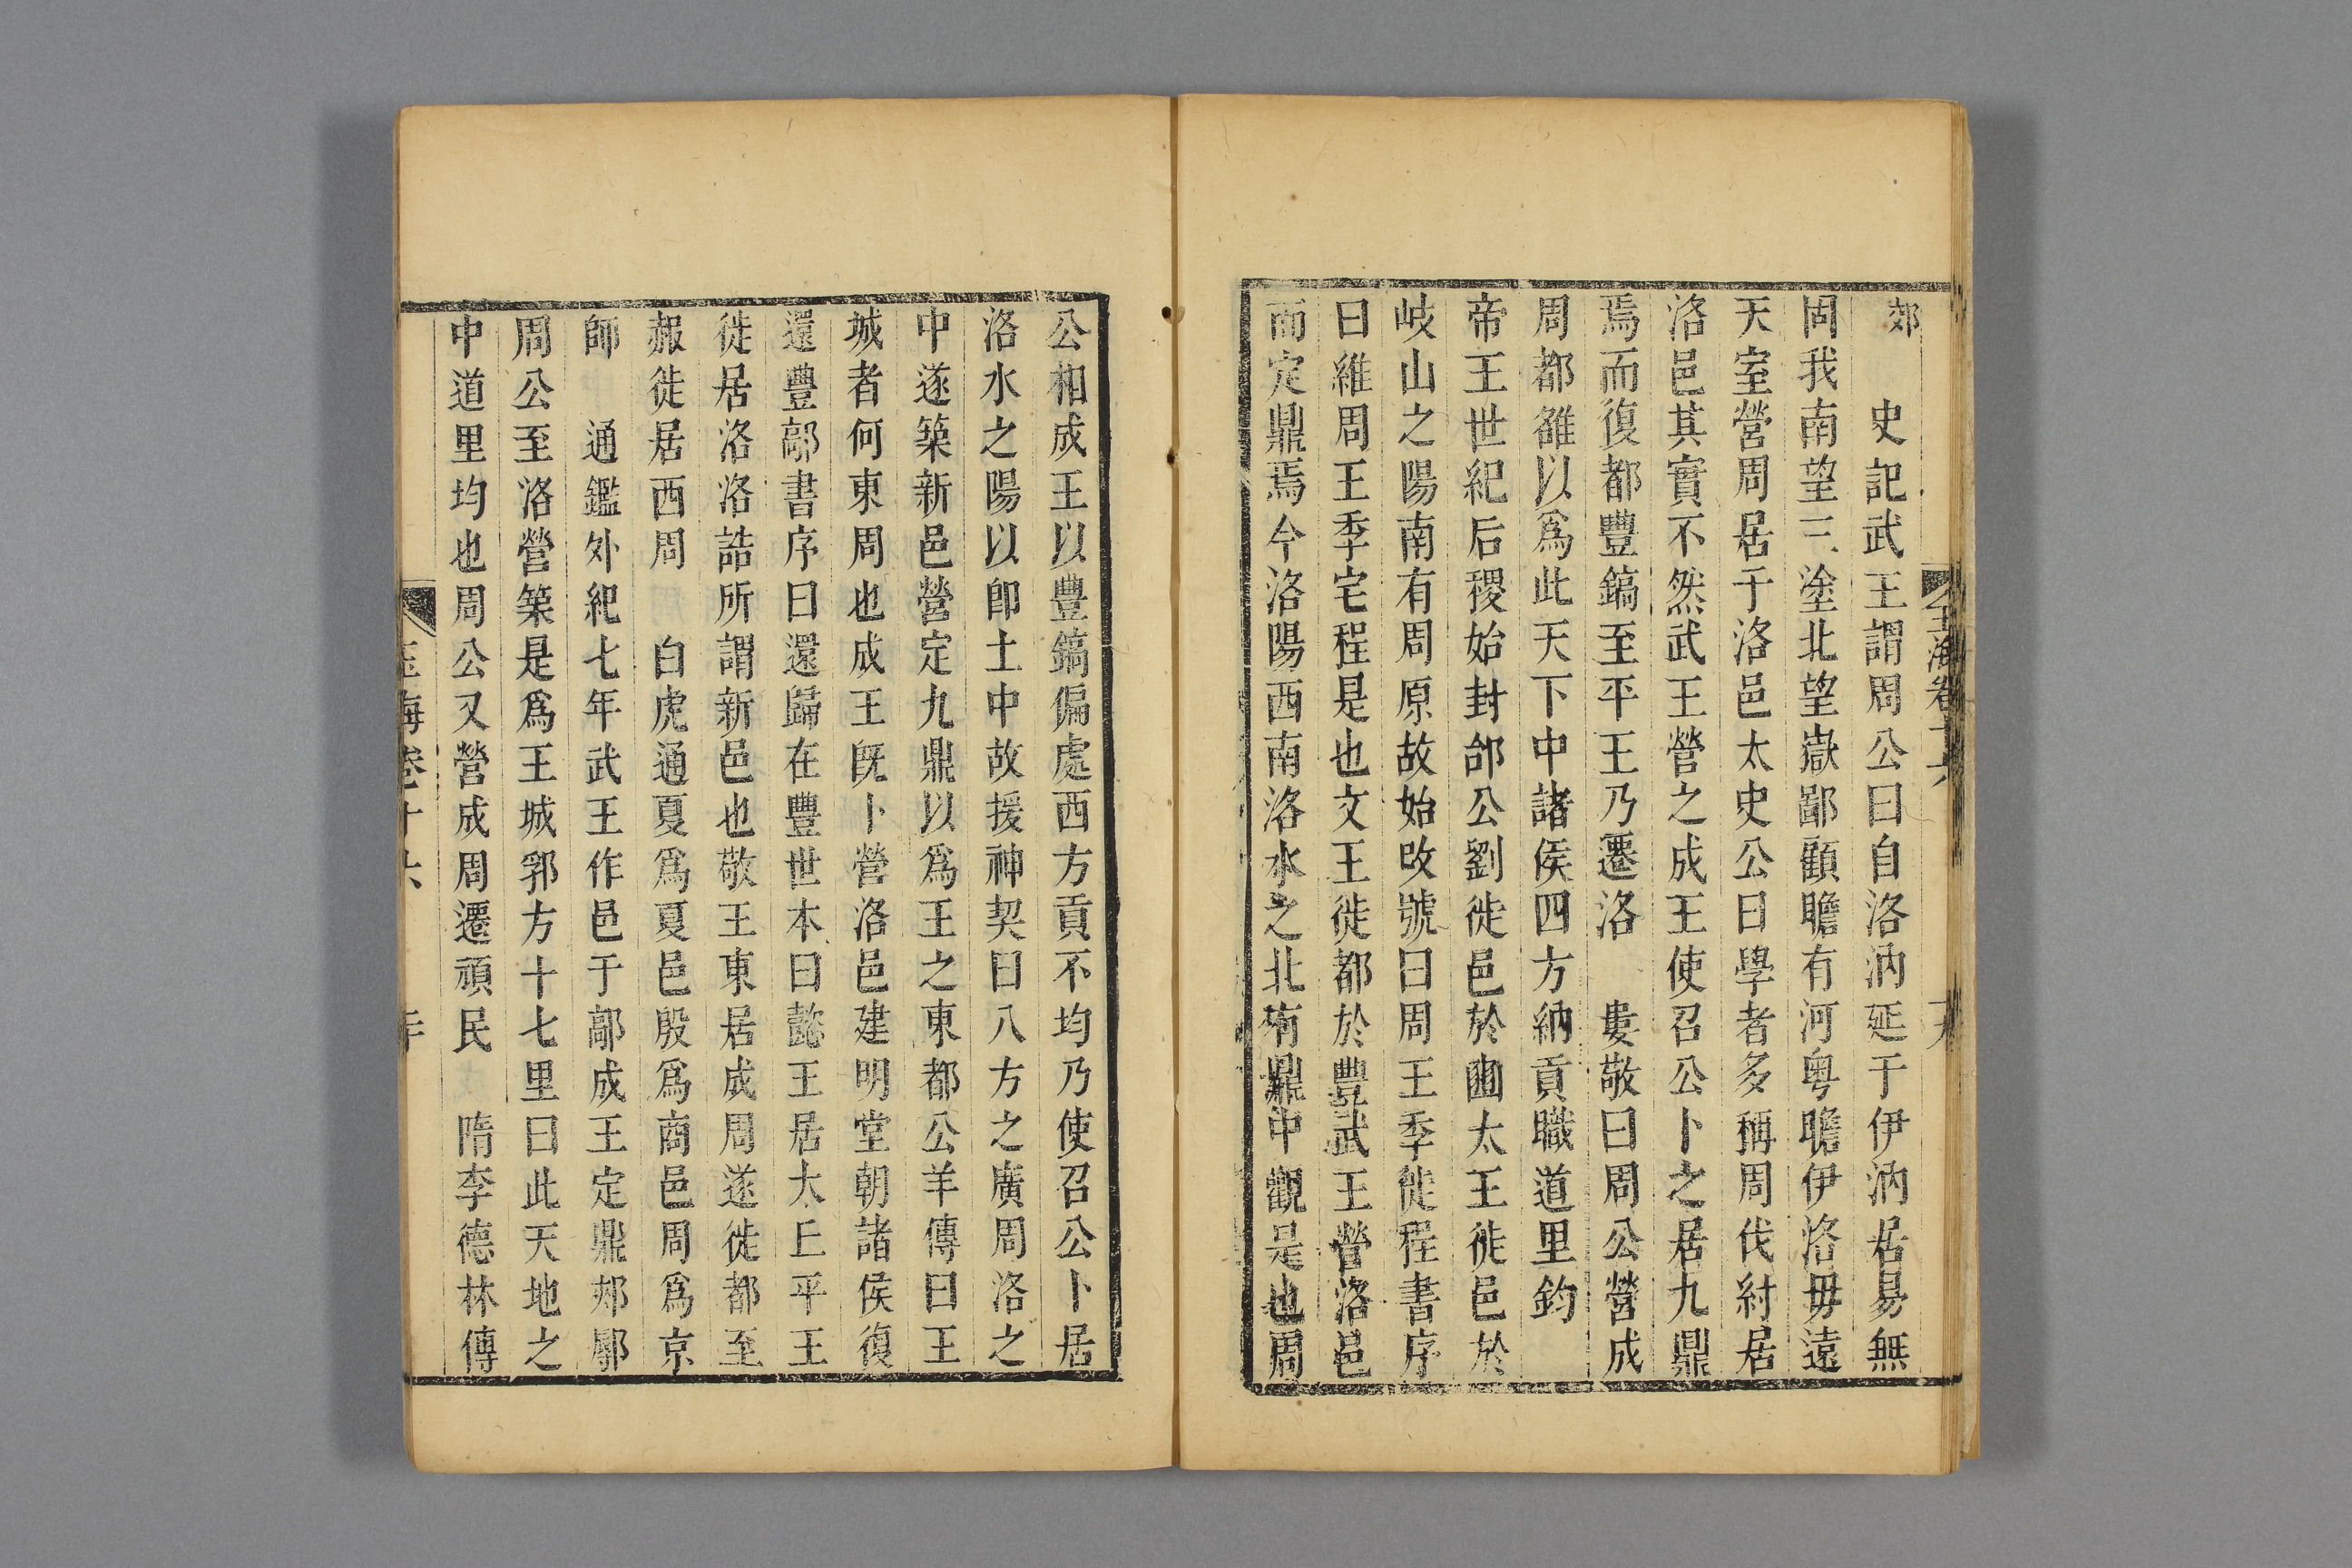 郊　史記武王謂周公曰自洛汭延于伊汭居易無
固我南望三塗北望嶽鄙顧瞻有河粤瞻伊洛毋遠
天室營周居于洛邑太史公曰學者多稱周伐紂居
洛邑其實不然武王營之成王使召公卜之居九鼎
焉而復都豐鎬至平王乃遷洛　婁敬曰周公營成
周都雒以爲此天下中諸侯四方納貢職道里鈞
帝王世紀后稷始封邰公劉徙邑於豳太王徙邑於
岐山之陽南有周原故始改號曰周王季徙程書序
曰維周王季宅程是也文王徙都於豐武王營洛邑
而定鼎焉今洛陽西南洛水之北有鼎中觀是也周
公相成王以豐鎬偏處西方貢不均乃使召公卜居
洛水之陽以卽土中故援神契曰八方之廣周洛之
中遂築新邑營定九鼎以爲王之東都公羊傳曰王
城者何東周也成王旣卜營洛邑建明堂朝諸侯復
還豐鄗書序曰還歸在豐世本曰懿王居犬丘平王
徙居洛洛誥所謂新邑也敬王東居成周遂徙都至
赧徙居西周　白虎通夏爲夏邑殷爲商邑周爲京
師　通鑑外紀七年武王作邑于鄗成王定鼎郟鄏
周公至洛營築是爲王城郛方十七里曰此天地之
中道里均也周公又營成周遷頑民　隋李德林傳
玉海卷十六